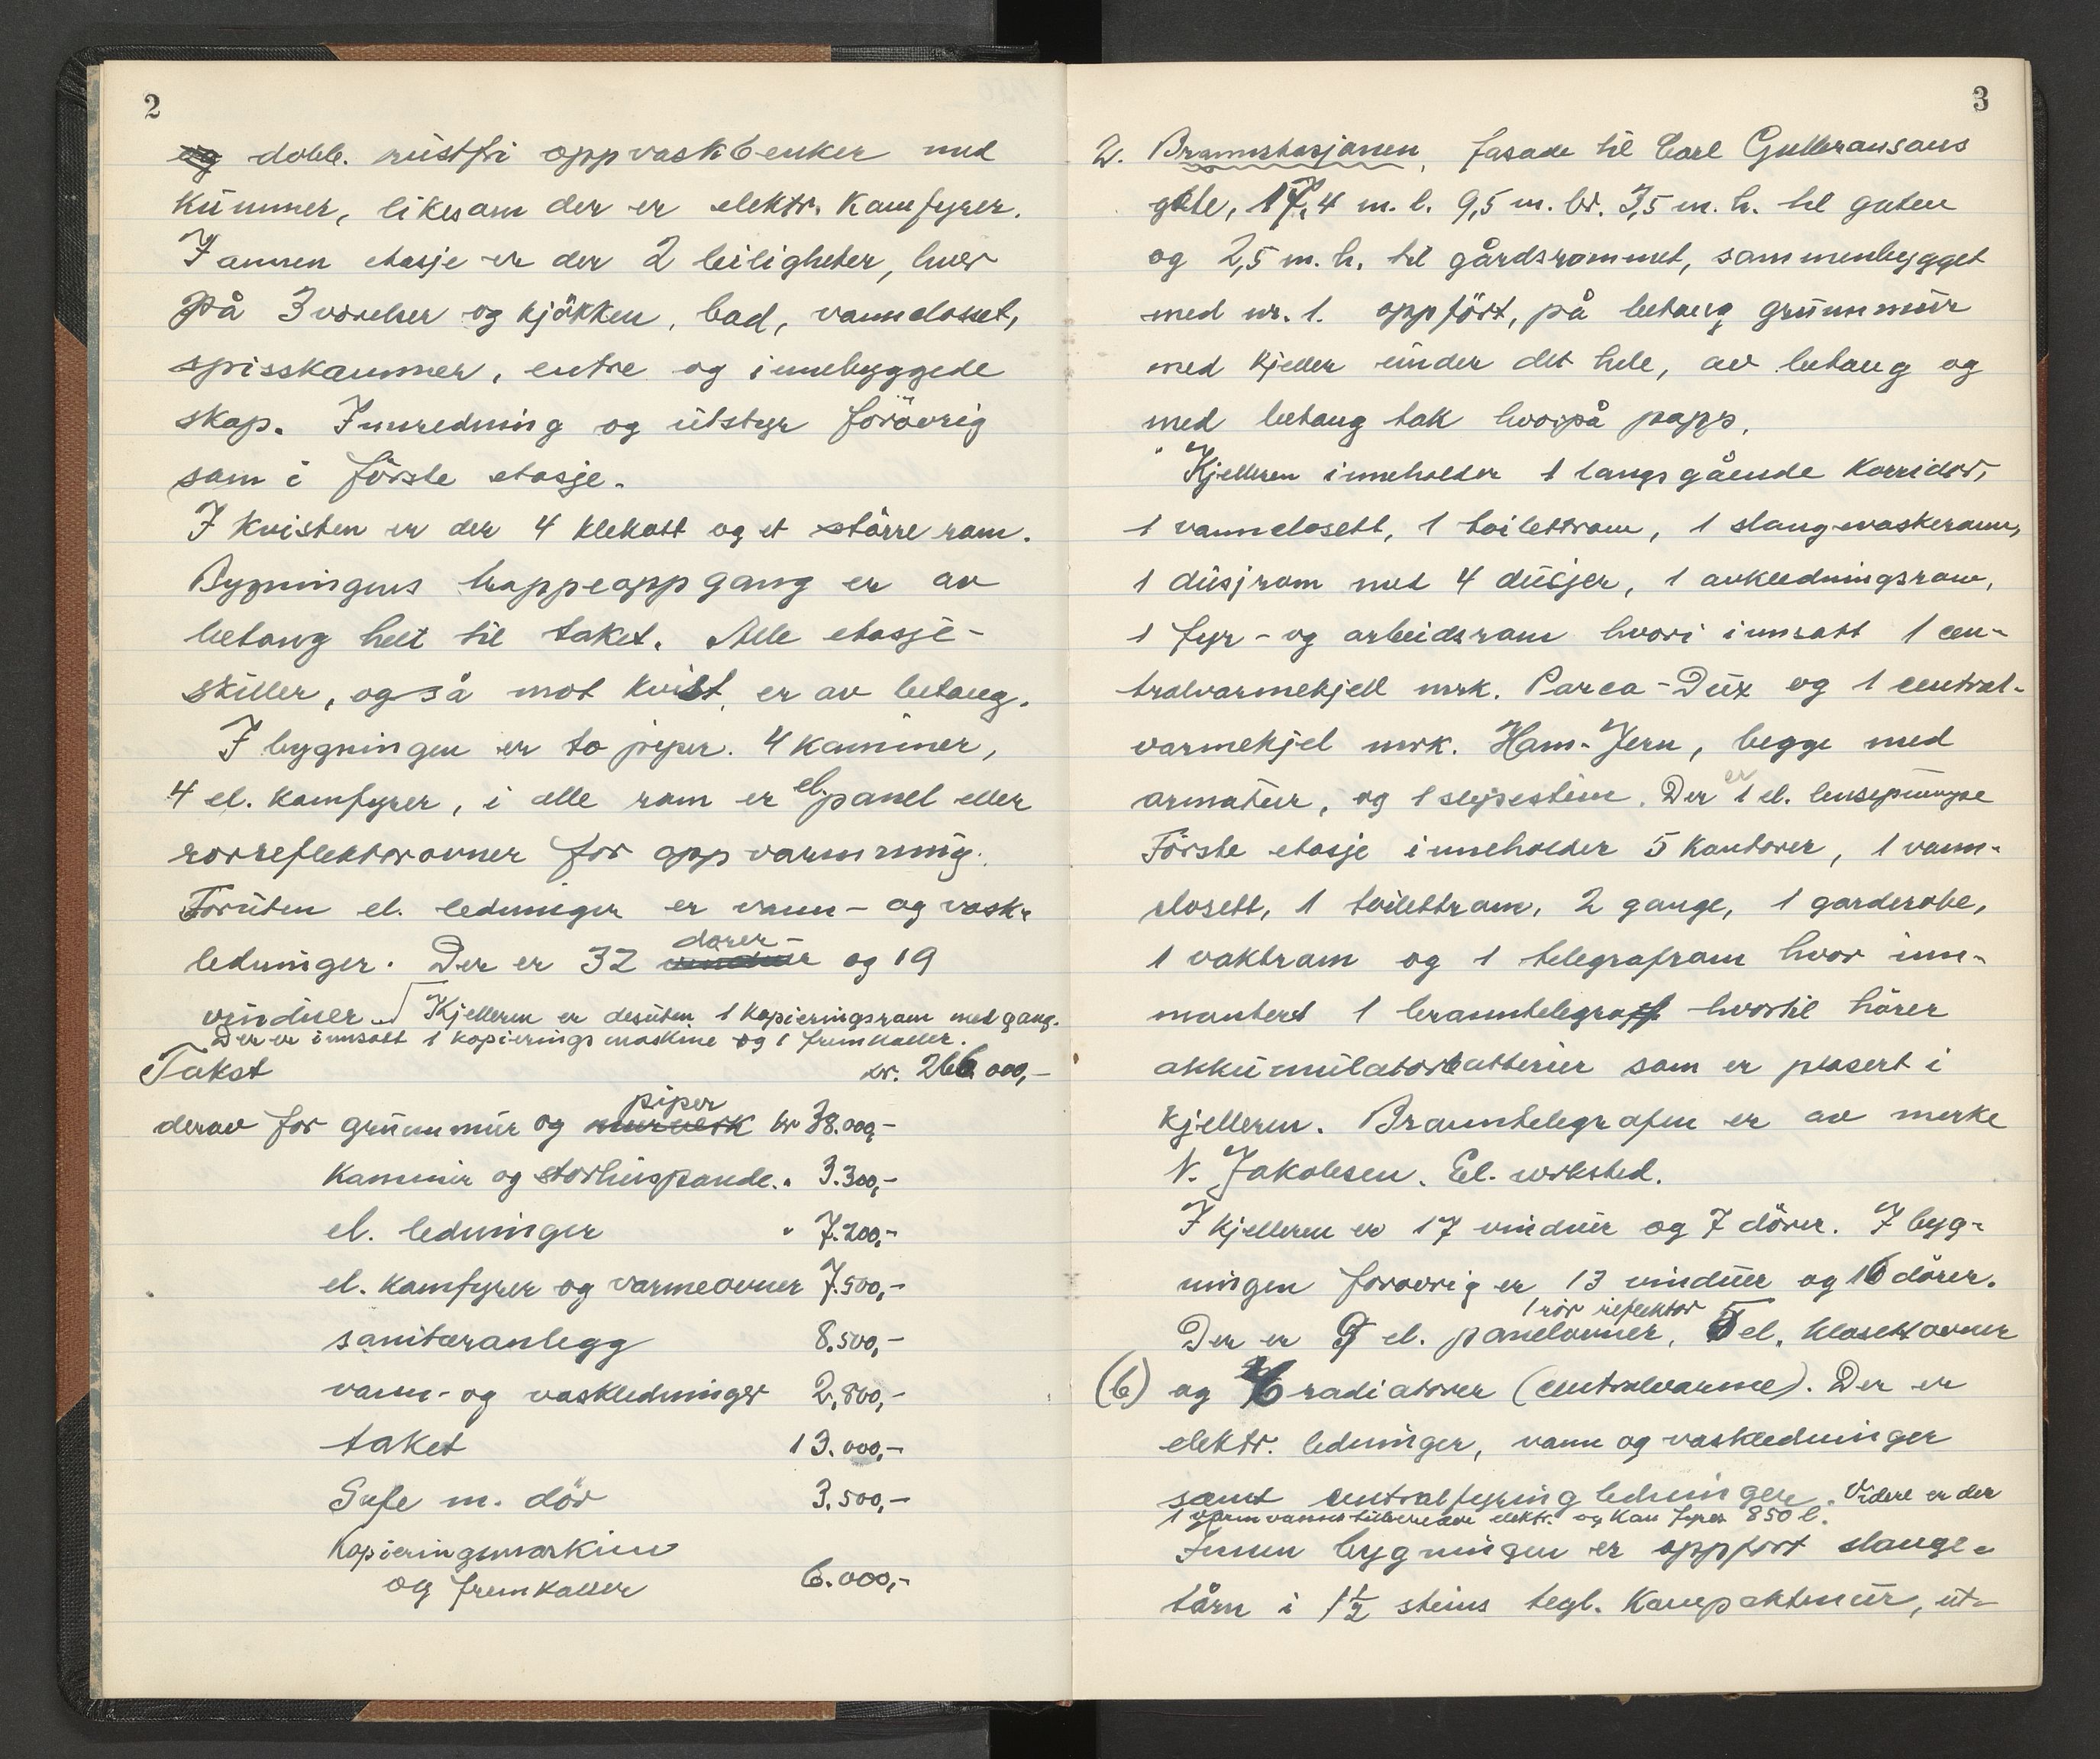 2
og dobb. rustfri oppvaskbenker med
kummer, likesom der er elektr. Komfyrer.
I annen etasje er der 2 leiligheter, hver
på 3 værelser og kjøkken, bad, vannclosset,
spisskammer, entre og innebyggede
skap. Innredning og utstyr forøvrig
som i første etasje.
I Kvisten er der 4 klekott og et større rom.
Bygningens trappeoppgang er av
betong helt til taket. Alle etasje-
skiller, også mot kvist, er av betong.
I bygningen er to piper. 4 kaminer,
4 el. komfyrer, i alle rom er el. panel eller
rorreflektorovner for oppvarmning.
Foruten el. ledninger er vann- og vask-
dører-
ledninger. Der er 32 vinduer og 19
vinduer. I Kjelleren er desuten 1 kopieringsrom med gang.
Der er innsatt 1 kopieringsmaskine og 1 fremkaller.
Takst kr. 266.000,-
piper
derav for grunnmur og murverk kr 38.000,-
Kaminer og storhuspande. " 3.300,-
el. ledninger " 7.200,-
el. Komfyrer og varmeovner 7.500,-
sanitæranlegg 8.500,-
vann- og vaskledninger 2.800,-
taket 13.000,-
Safe m. dör 3.500,-
Kopieringsmaskine
og fremkaller 6.000,-
3
2. Brannstasjonen, fasade til Carl Gulbransons
gate, 17,4 m. l. 9,5 m. br. 3,5 m. h. til gaten
og 2,5 m. h. til gårdsrommet, sammenbygget
med nr. 1. oppfört, på betong grunnmur
med kjeller under det hele, av betong og
med betong tak hvorpå papp.
Kjelleren inneholder 1 langsgående korridor,
1 vannclosett, 1 toilettrom, 1 slangevaskerom,
1 dusjrom med 4 dusjer, 1 avkledningsrom,
1 fyr- og arbeidsrom hvori innsatt 1 cen-
tralvarmekjell mrk. Parca-Dux og 1 central-
varmekjel mrk. Ham-Jern, begge med
er
armatur, og 1 slipestein. Der 1 el. lensepumpe
Förste etasje inneholder 5 kontorer, 1 vann-
closett, 1 toilettrom, 2 gange, 1 garderobe,
1 vaktrom og 1 telegrafrom hvor inn-
montert 1 branntelegraf hvortil hörer
akkumulatorbatterier som er plasert i
kjelleren. Branntelegrafen er av merke
N. Jakobsen. El. verksted.
I kjelleren er 17 vinduer og 7 dörer. I byg-
ningen forovrig er 13 vinduer og 16 dörer.
1 rör reflektor
Der er 9 el. panelovner, 5 el. klosettovner
(6) og 6 radiatorer (centralvarme). Der er
elektr. ledninger, vann og vaskledninger
samt centralfyring ledninger. Videre er der
1 varmvannstillbereder elektr. og kan fyres 850 l.
Innen bygningen er oppfort slange-
tårn i 1½ steins tegl. Kompaktmur, ut-